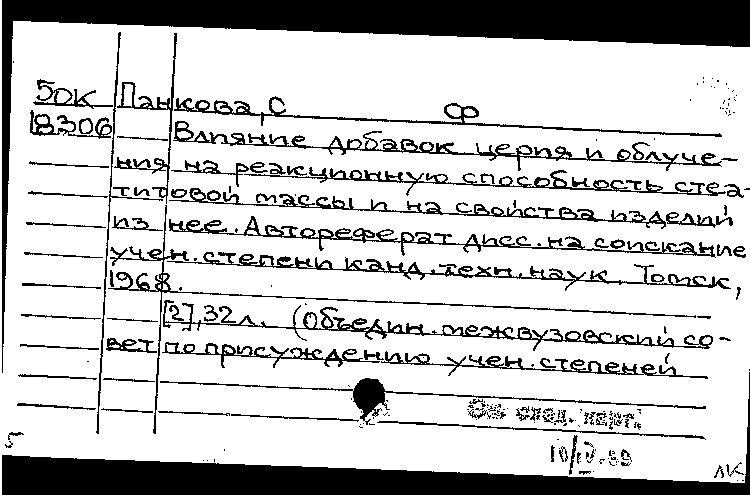 5ОК Панкова, С Ф
18306 Влияние добавок церия и облуче-
ния на реакционную способность стеа-
титовой массы и на свойства изделий
из нее. Автореферат дисс. на соискание
учен. степени канд. техн. наук. Томск,
1968.
[2], 32 л. (Объедин. межвузовский со-
вет по присуждению учен. степеней
См. след. карт.
5
ЛК